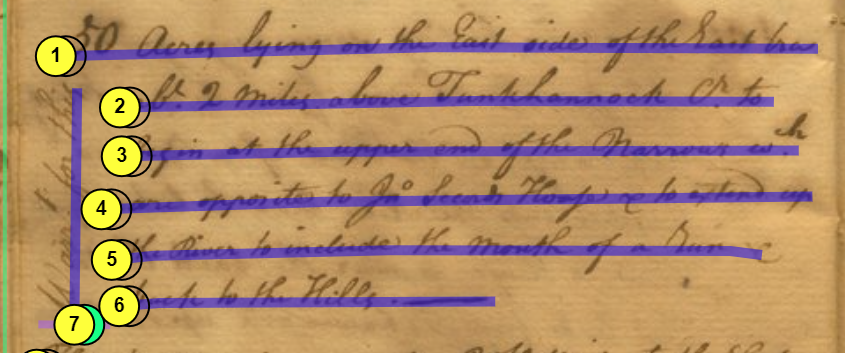 50 Acres lying on the East side of the East bra
bt. 2 miles above Tunkhannock Cr. to
gin at the upper end of the Narrows wch
are opposite to Jno Secords House & to extend up
the River to include the mouth of a Run
back to the Hills.